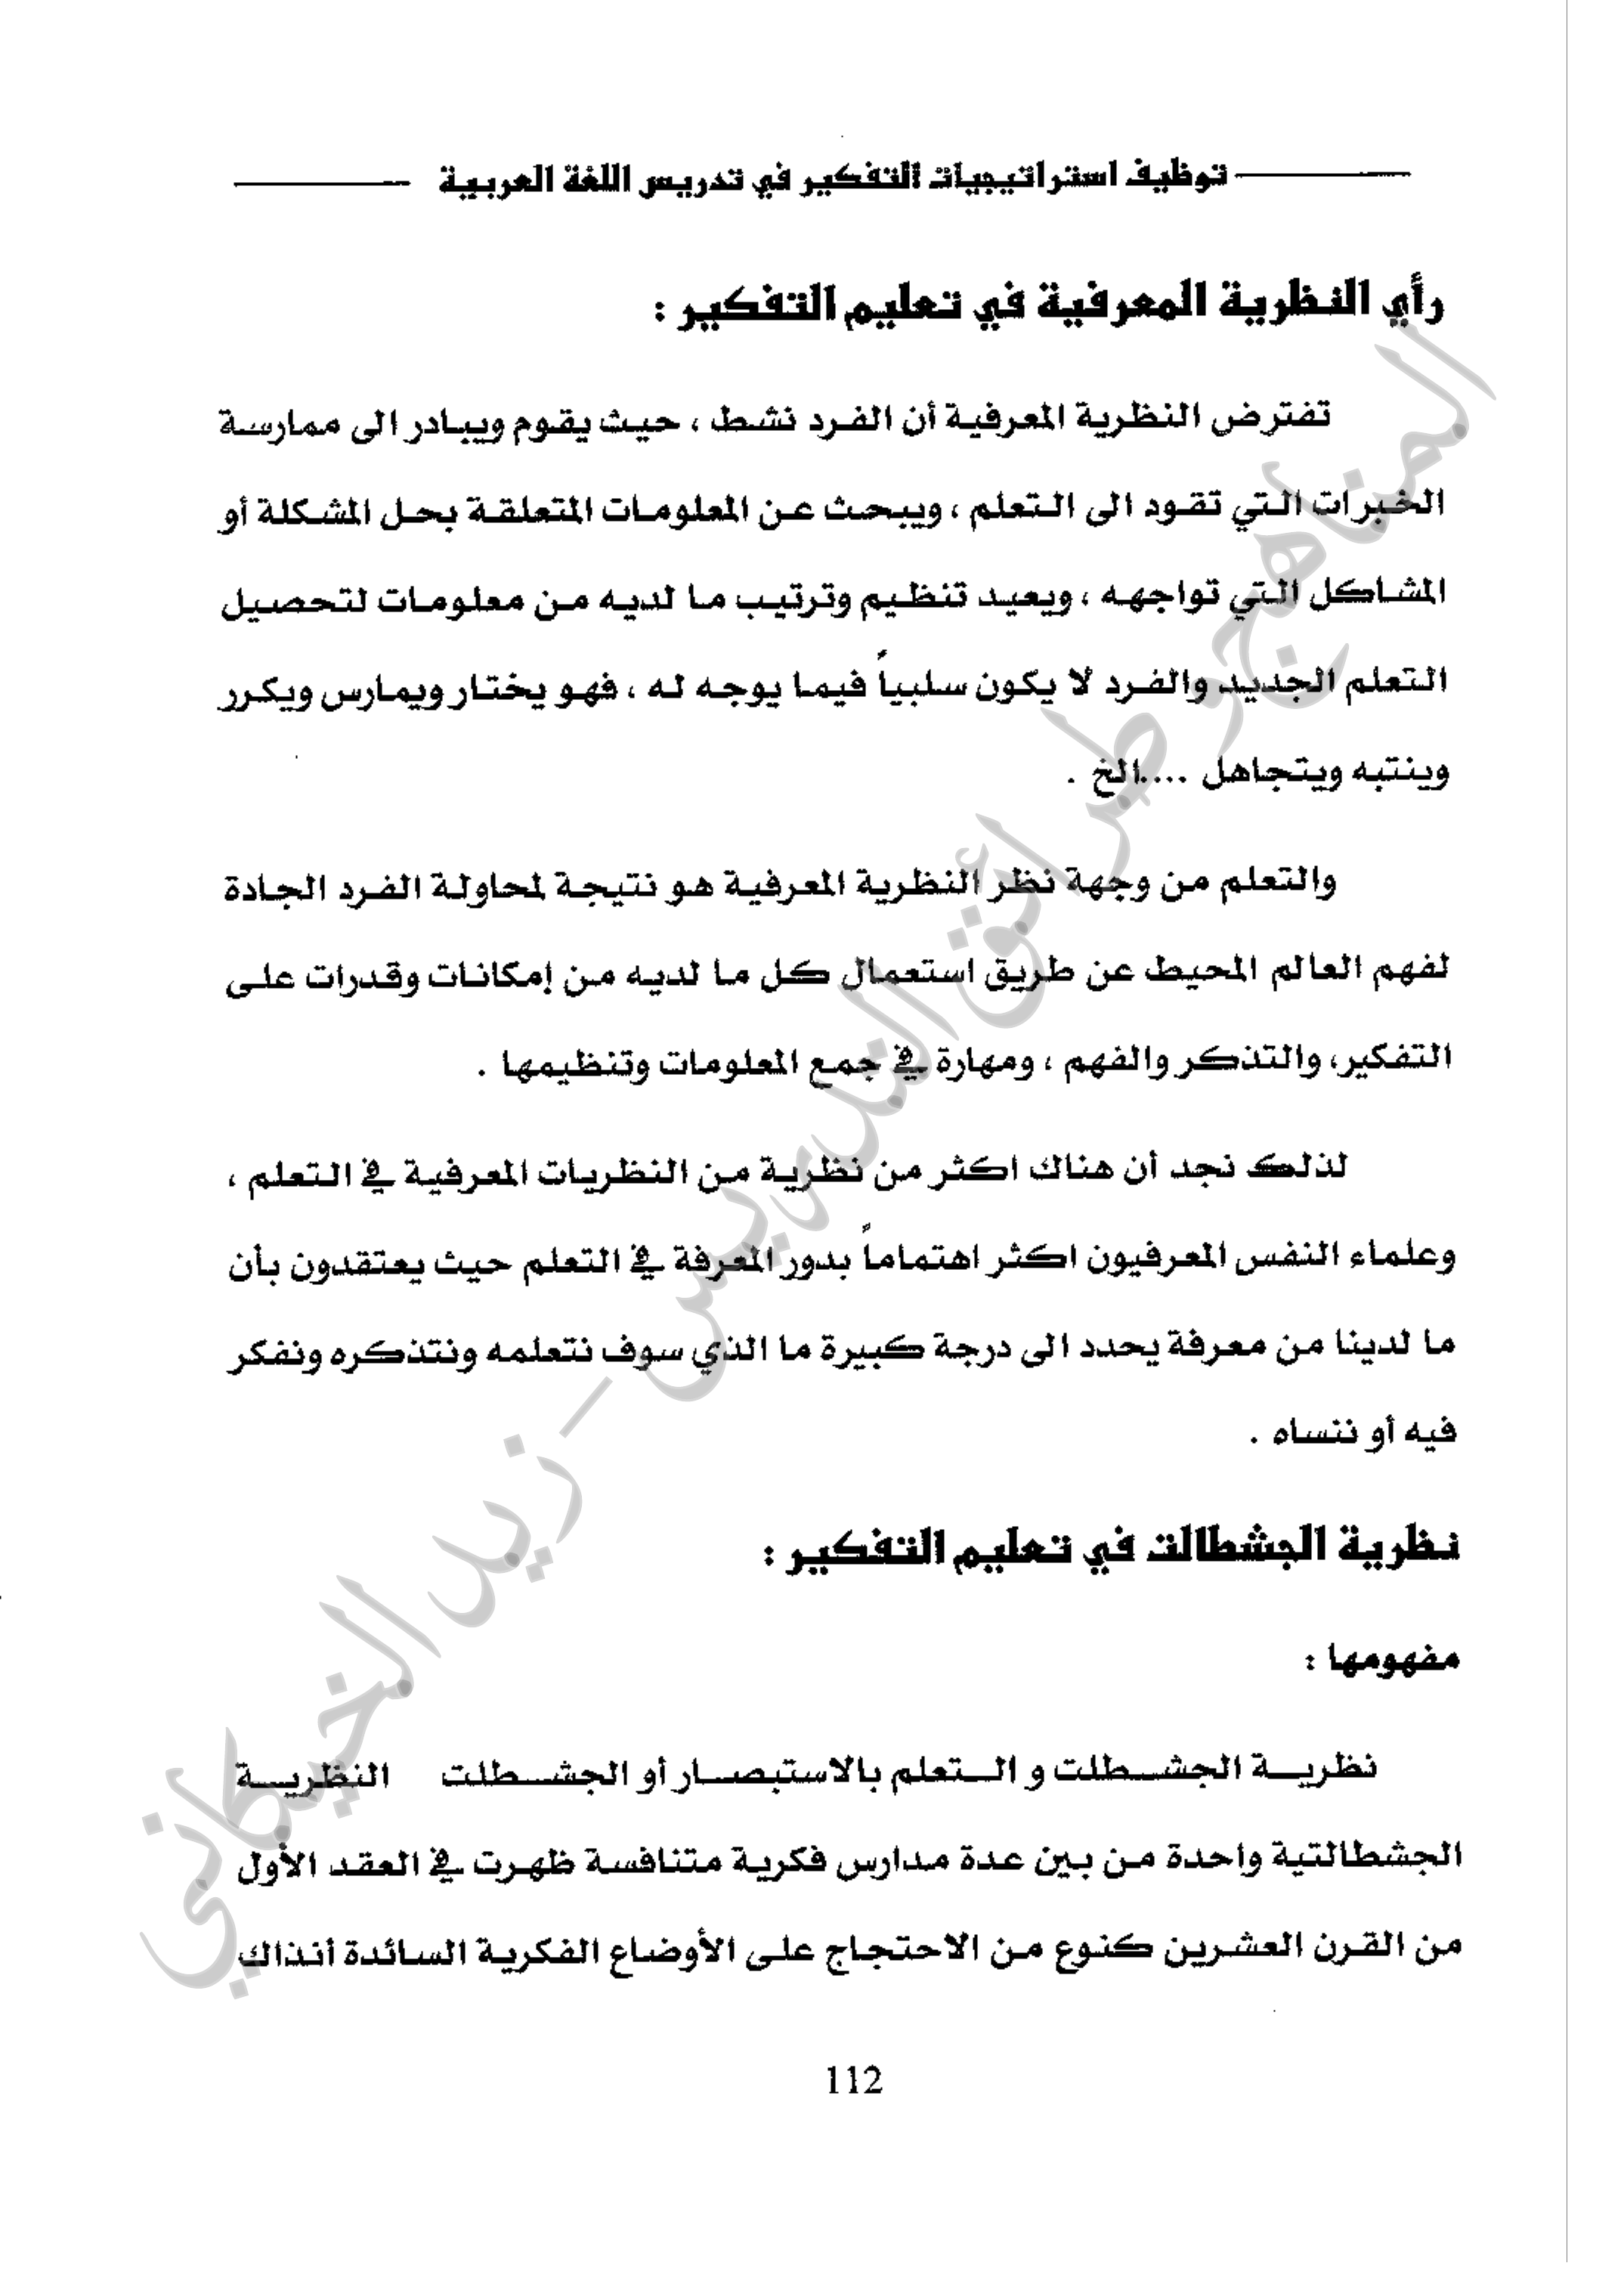 توظيف استراتيجيات التفكير في تدريس اللغة العربية
رأي النظرية المعرفية في تعليم التفكير :
تفترض النظرية المعرفية أن الفرد نشط ، حيث يقوم ويبادر الى ممارسة
الخبرات التي تقود الى التعلم ، ويبحث عن المعلومات المتعلقة بحل المشكلة أو
المشاكل التي تواجهه ، ويعيد تنظيم وترتيب ما لديه من معلومات لتحصيل
التعلم الجديد والفرد لا يكون سلبياً فيما يوجه له ، فهو يختار ويمارس ويكرر
وينتبه ويتجاهل ....الخ .
والتعلم من وجهة نظر النظرية المعرفية هو نتيجة لمحاولة الفرد الجادة
لفهم العالم المحيط عن طريق استعمال كل ما لديه من إمكانات وقدرات على
التفكير، والتذكر والفهم ، ومهارة في جمع المعلومات وتنظيمها .
لذلك نجد أن هناك اكثر من نظرية من النظريات المعرفية في التعلم ،
وعلماء النفس المعرفيون اكثر اهتماماً بدور المعرفة في التعلم حيث يعتقدون بأن
ما لدينا من معرفة يحدد الى درجة كبيرة ما الذي سوف نتعلمه ونتذكره ونفكر
فيه أو ننساه .
نظرية الجشطالت في تعليم التفكير :
مفهومها :
نظرية الجشطلت و التعلم بالاستبصار أو الجشطلت النظرية
الجشطالتية واحدة من بين عدة مدارس فكرية متنافسة ظهرت في العقد الأول
من القرن العشرين كنوع من الاحتجاج على الأوضاع الفكرية السائدة أنذاك
112
المناهج وطرائق التدريس - زيد الخيكاني